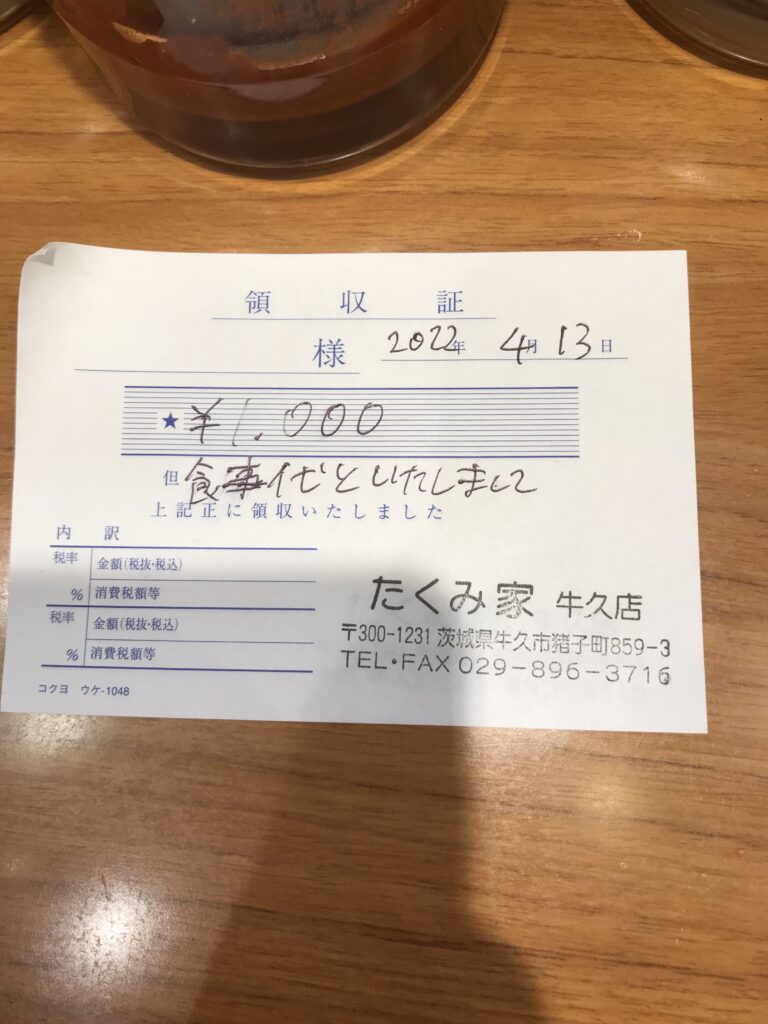 領 収 証
様 2022年 4月 13日
★ ¥1,000
但 食事代といたしまして
上記正に領収いたしました
内 訳
税率 金額(税抜・税込)
% 消費税額等
税率 金額(税抜・税込)
% 消費税額等
コクヨ ウケ-1048
たくみ家 牛久店
〒300-1231 茨城県牛久市猪子町859-3
TEL・FAX 029-896-3716